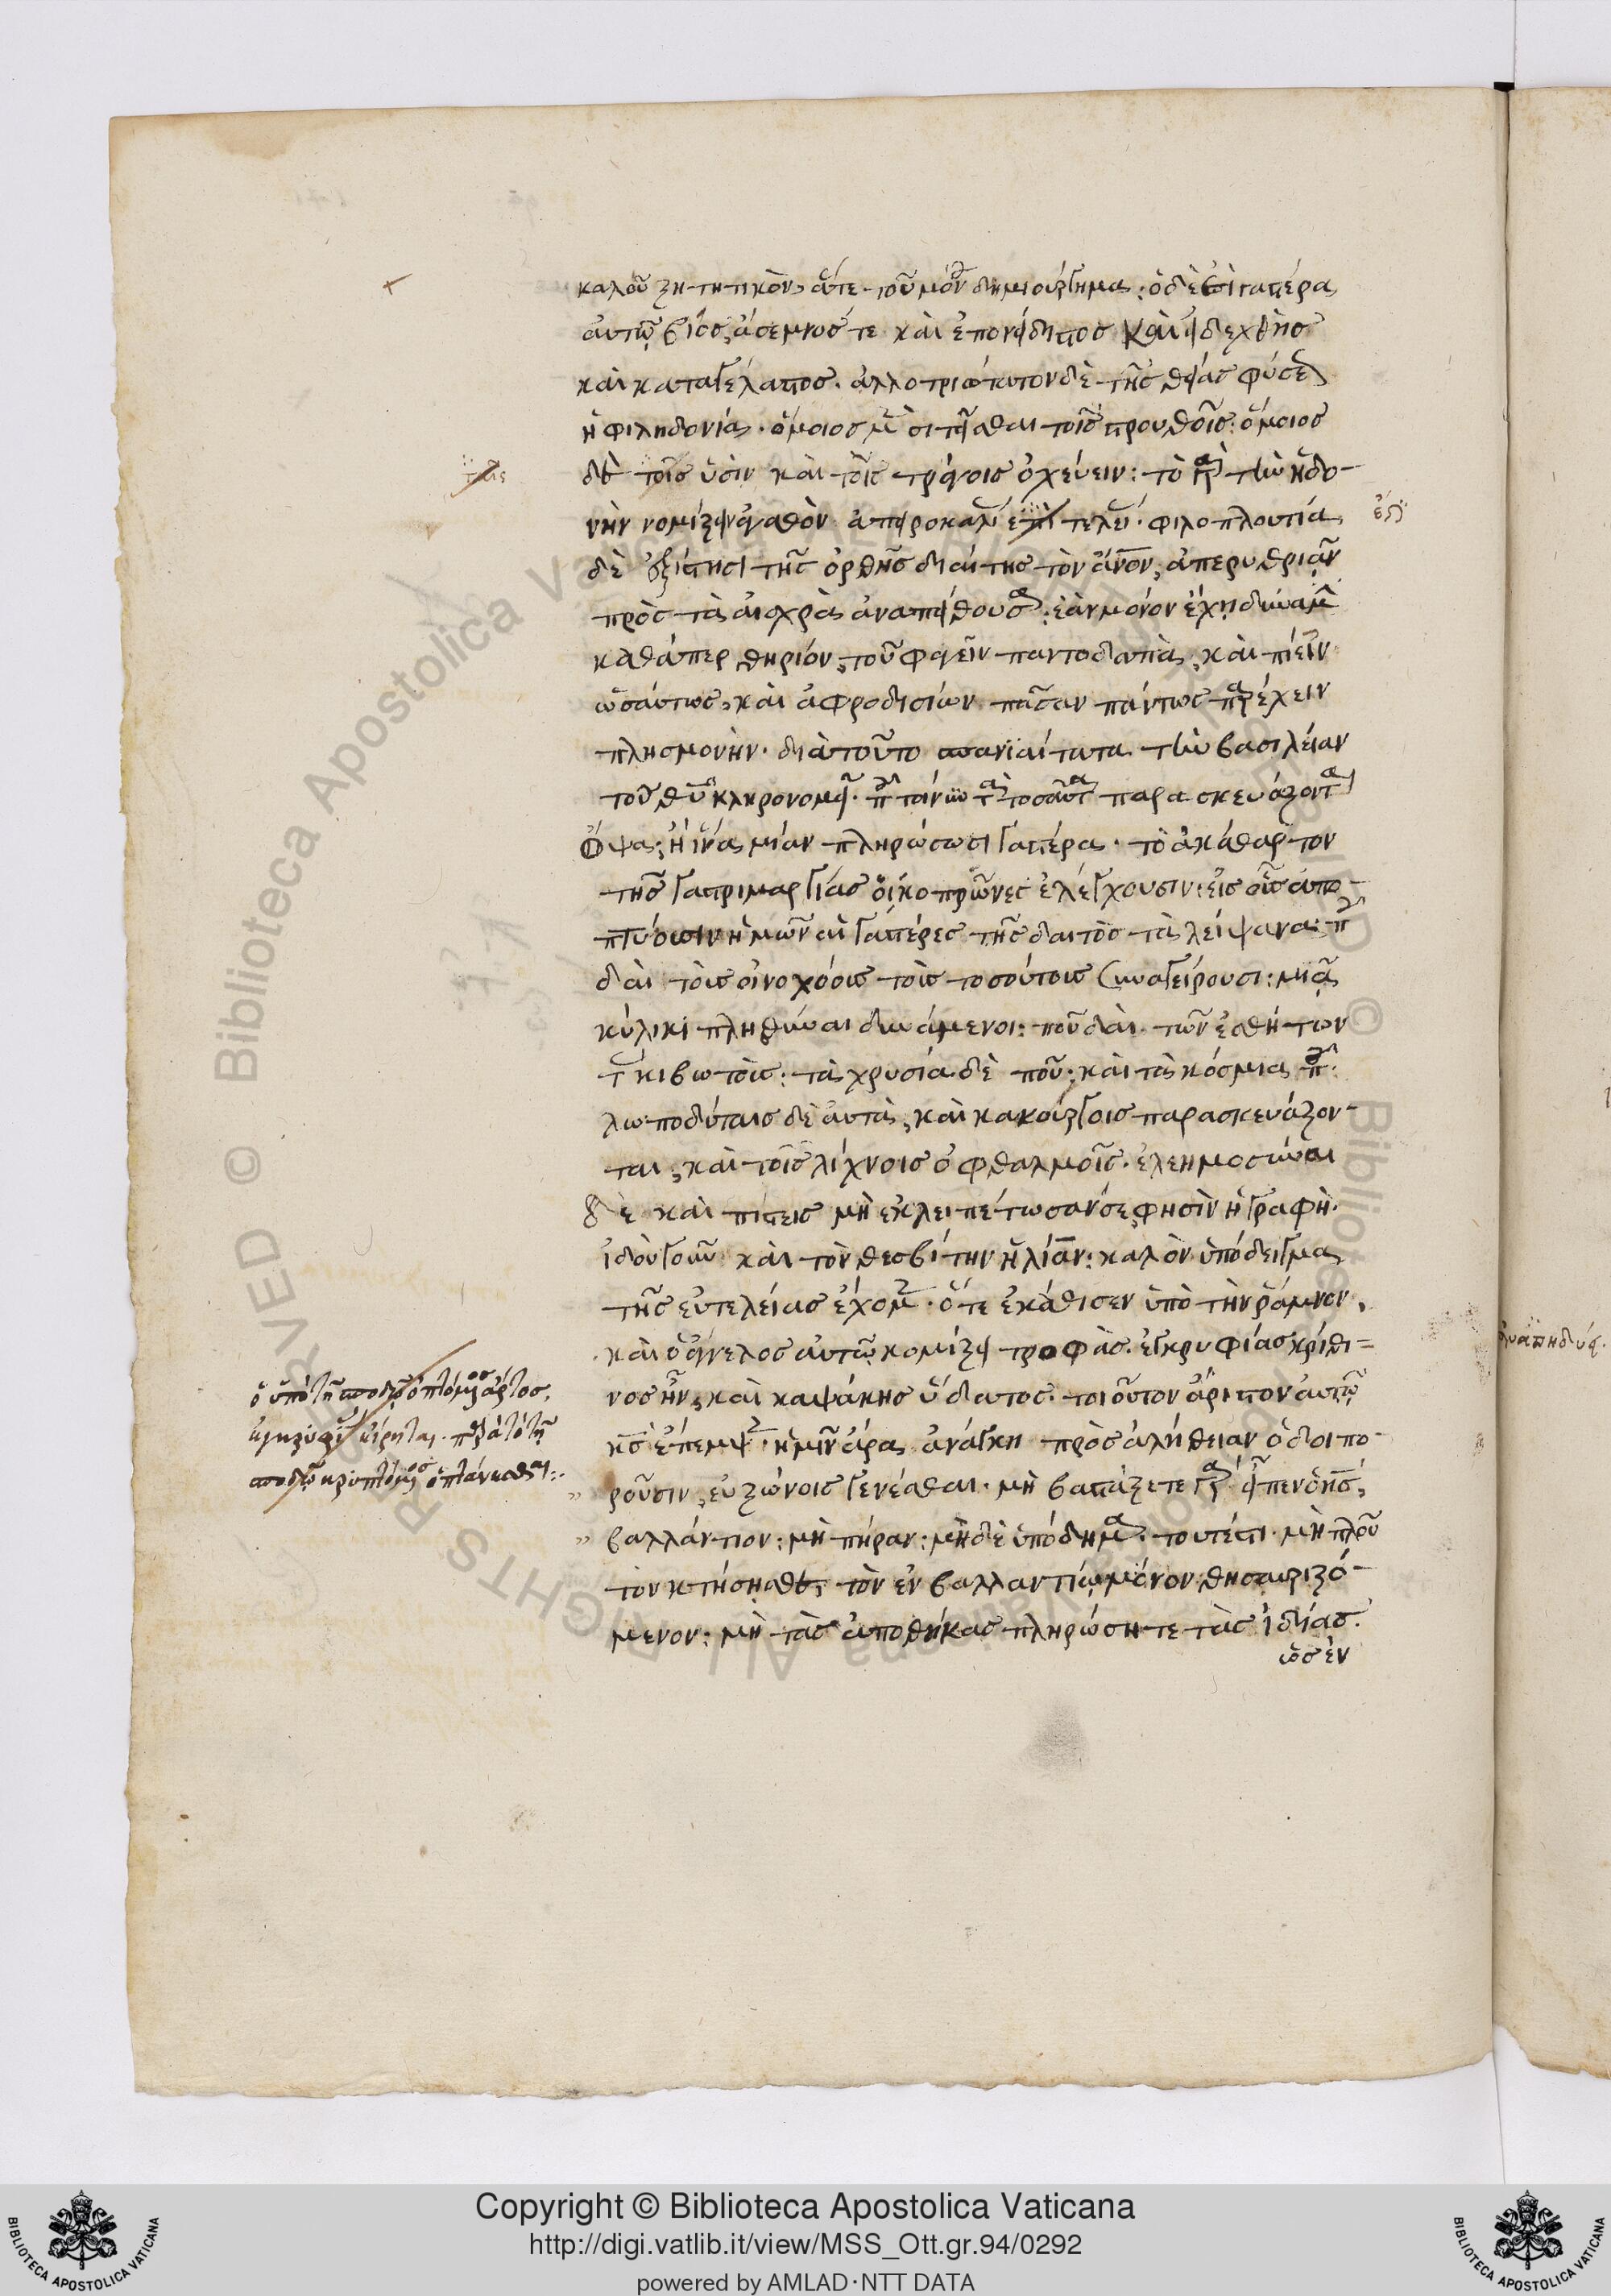 καλοῦ ζητητικὸν, ἅτε τοῦ μόνου δημιούργημα· ὁ δὲ ἐπὶ γαστέρα
αὐτῷ βίος, ἄσεμνός τε καὶ ἐπονείδιστος καὶ εἰδεχθὴς
καὶ καταγέλαστος. ἀλλοτριώτατον δὲ τῆς θείας φύσεως
ἡ φιληδονία. ὅμοιος μὲν σιτεῖσθαι τοῖς στρουθοῖς: ὅμοιος
δὲ τοῖς ὑσὶν καὶ τοῖς τράγοις ὀχεύειν: τὸ γὰρ τὴν ἡδο-
νὴν νομίζειν ἀγαθὸν ἀπειροκαλίας ἐπὶ τελείας. φιλοπλουτία
δὲ ἐξίστησι τῆς ὀρθῆς διαίτης τὸν ἄνον, ἀπερυθριᾶν
πρὸς τὰ αἰσχρὰ ἀναπείθουσα: ἐὰν μόνον ἔχῃ δύναμιν
καθάπερ θηρίον, τοῦ φαγεῖν παντοδαπὰ, καὶ πιεῖν
ὡσαύτως, καὶ ἀφροδισίων πᾶσαν πάντως παρέχειν
πλησμονήν. διὰ τοῦτο σπανιαίτατα τὴν βασιλείαν
τοῦ θυ κληρονομεῖ. ποῖ τοίνυν τὰ τοσαῦτα παρασκευάζονται
ὄψα; ἢ ἵνα μίαν πληρώσωσι γαστέρα. τὸ ἀκάθαρτον
τῆς γαστριμαργίας οἱ κοπρῶνες ἐλέγχουσιν: εἰς οὓς ἀπο-
πτύουσιν ἡμῶν αἱ γαστέρες τῆς δαιτὸς τὰ λείψανα: ποῖ
δαὶ τοὺς οἰνοχόους τοὺς τοσούτους συναγείρουσι: μιᾷ
κύλικι πλησθῆναι δυνάμενοι: ποῦ δαὶ τῶν ἐσθήτων
τὰς κιβωτούς: τὰ χρυσία δὲ ποῦ: καὶ τὰ κόσμια ποῖ:
λωποδύταις δὲ αὐτὰ, καὶ κακούργοις παρασκευάζον-
ται, καὶ τοῖς λίχνοις ὀφθαλμοῖς. ἐλεημοσύναι
δὲ καὶ πίστεις μὴ ἐκλειπέτωσάν σε, φησὶν ἡ γραφή.
ἰδοὺ γοῦν καὶ τὸν θεσβίτην ἠλίαν: καλὸν ὑπόδειγμα
τῆς εὐτελείας ἔχομεν. ὅτε ἐκάθισεν ὑπὸ τὴν ῥάμνον,
καὶ ὁ ἄγγελος αὐτῷ κομίζει τροφάς. ἐγκρυφίας κρίθι-
νος ἦν, καὶ καψάκης ὕδατος. τοιοῦτον ἄριστον αὐτῷ
κς ἔπεμψεν. ἡμῖν ἄρα ἀνάγκη πρὸς ἀλήθειαν ὁδοιπο-
ροῦσιν, εὐζώνοις γενέσθαι. μὴ βαστάζετε γὰρ εἶπεν ὁ κς,
βαλλάντιον: μὴ πήραν: μηδὲ ὑπόδημα. τουτέστι μὴ πλοῦ
τον κτήσησθε, τὸν ἐν βαλλαντίῳ μόνον θησαυριζό-
μενον: μὴ τὰς ἀποθήκας πληρώσητε τὰς ἰδίας.
ὡς ἐν
ὁ ὑπὸ τῇ σποδῷ ὀπτόμενος ἄρτος,
ἐγκρυφίας εἴρηται. παρὰ τὸ τῇ
σποδῷ κρυπτόμενος ὀπτάνεσθαι: